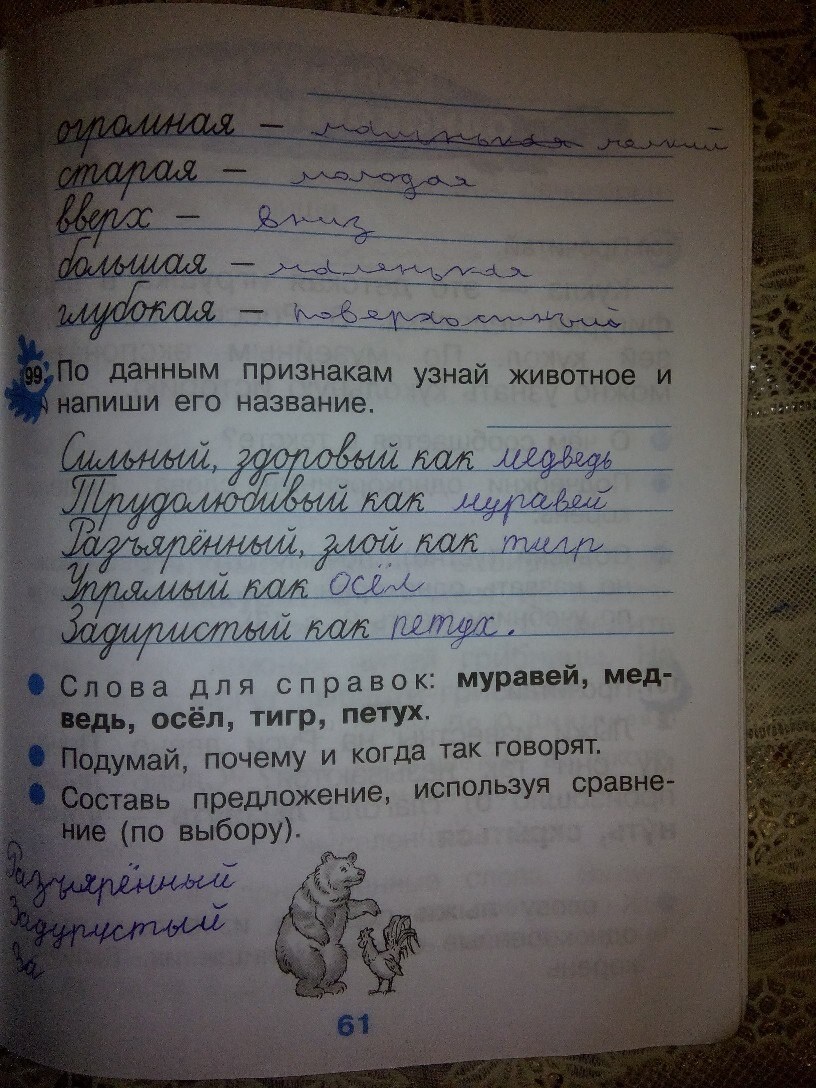 огромная – маленькая мелкий
старая – молодая
вверх – вниз
большая – маленькая
глубокая – поверхостный
99 По данным признакам узнай животное и
напиши его название.
Сильный, здоровый как медведь
Трудолюбивый как муравей
Разъярённый, злой как тигр
Упрямый как осёл
Задиристый как петух.
Слова для справок: муравей, мед-
ведь, осёл, тигр, петух.
Подумай, почему и когда так говорят.
Составь предложение, используя сравне-
ние (по выбору).
Разъярённый
Задурустый
За
61